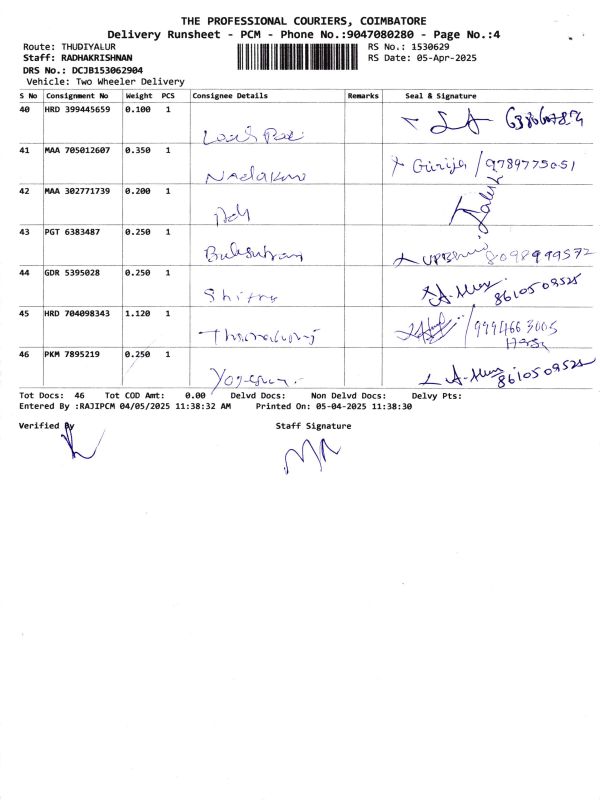 THE PROFESSIONAL COURIERS, COIMBATORE
Delivery Runsheet - PCM - Phone No.:9047080280 - Page No.:4
Route: THUDIYALUR RS No.: 1530629
Staff: RADHAKRISHNAN RS Date: 05-Apr-2025
DRS No.: DCJB153062904
Vehicle: Two Wheeler Delivery
S No Consignment No Weight PCS Consignee Details Remarks Seal & Signature
40 HRD 399445659 0.100 1
41 MAA 705012607 0.350 1 Girija / 9789775051
42 MAA 302771739 0.200 1
43 PGT 6383487 0.250 1 8098999572
44 GDR 5395028 0.250 1 Shitra 8610509525
45 HRD 704098343 1.120 1 9994663005
46 PKM 7895219 0.250 1 8610509525
Tot Docs: 46 Tot COD Amt: 0.00 Delvd Docs: Non Delvd Docs: Delvy Pts:
Entered By :RAJIPCM 04/05/2025 11:38:32 AM Printed On: 05-04-2025 11:38:30
Verified By Staff Signature